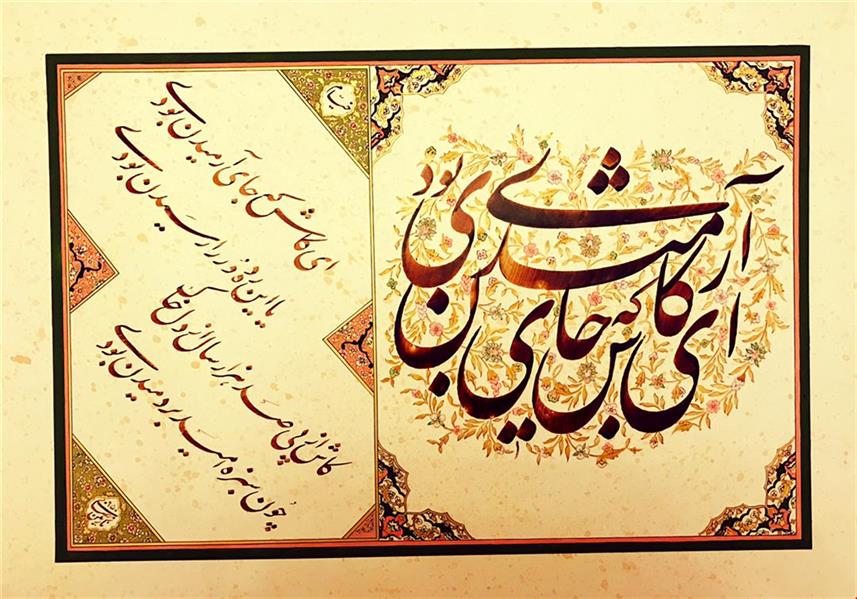 ای کاش که جای آرمیدن بودی
ای کاش که جای آرمیدن بودی
یا این ره دور را رسیدن بودی
کاش از پی صد هزار سال از دل خاک
چون سبزه امید بر دمیدن بودی